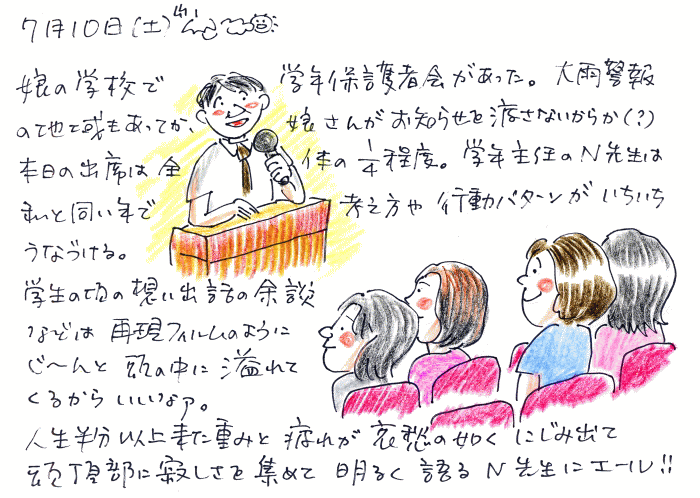 7月10日(土)
娘の学校で 学年保護者会があった。大雨警報
の地域もあってか、娘さんがお知らせを渡さないからか(?)
本日の出席は全体の1/4程度。学年主任のN先生は
私と同い年で 考え方や行動パターンがいちいち
うなづける。
学生の頃の想い出話の余談
などは再現フィルムのように
じ〜んと頭の中に溢れて
くるからいいなァ。
人生半分以上来た重みと疲れが哀愁の如くにじみ出て
頭頂部に寂しさを集めて明るく語るN先生にエール!!